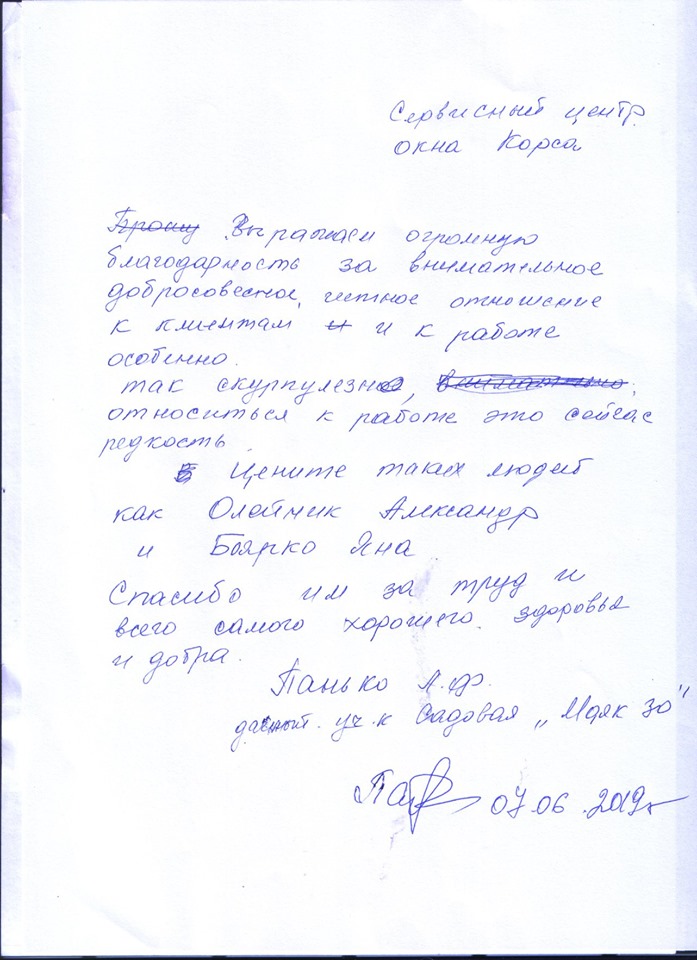 Сервисный центр
окна Корса
Прошу Выражаем огромную
благодарность за внимательное
добросовесное, честное отношение
к клиентам и и к работе
особенно.
так скурпулезно, внимательно,
относиться к работе это сейчас
редкость
Цените таких людей
как Олейник Александр
и Боярко Яна
Спасибо им за труд и
всего самого хорошего. здоровья
и добра.
Панько Л.Ф.
уч. к Садовая „Маяк 30"
07.06.2019г